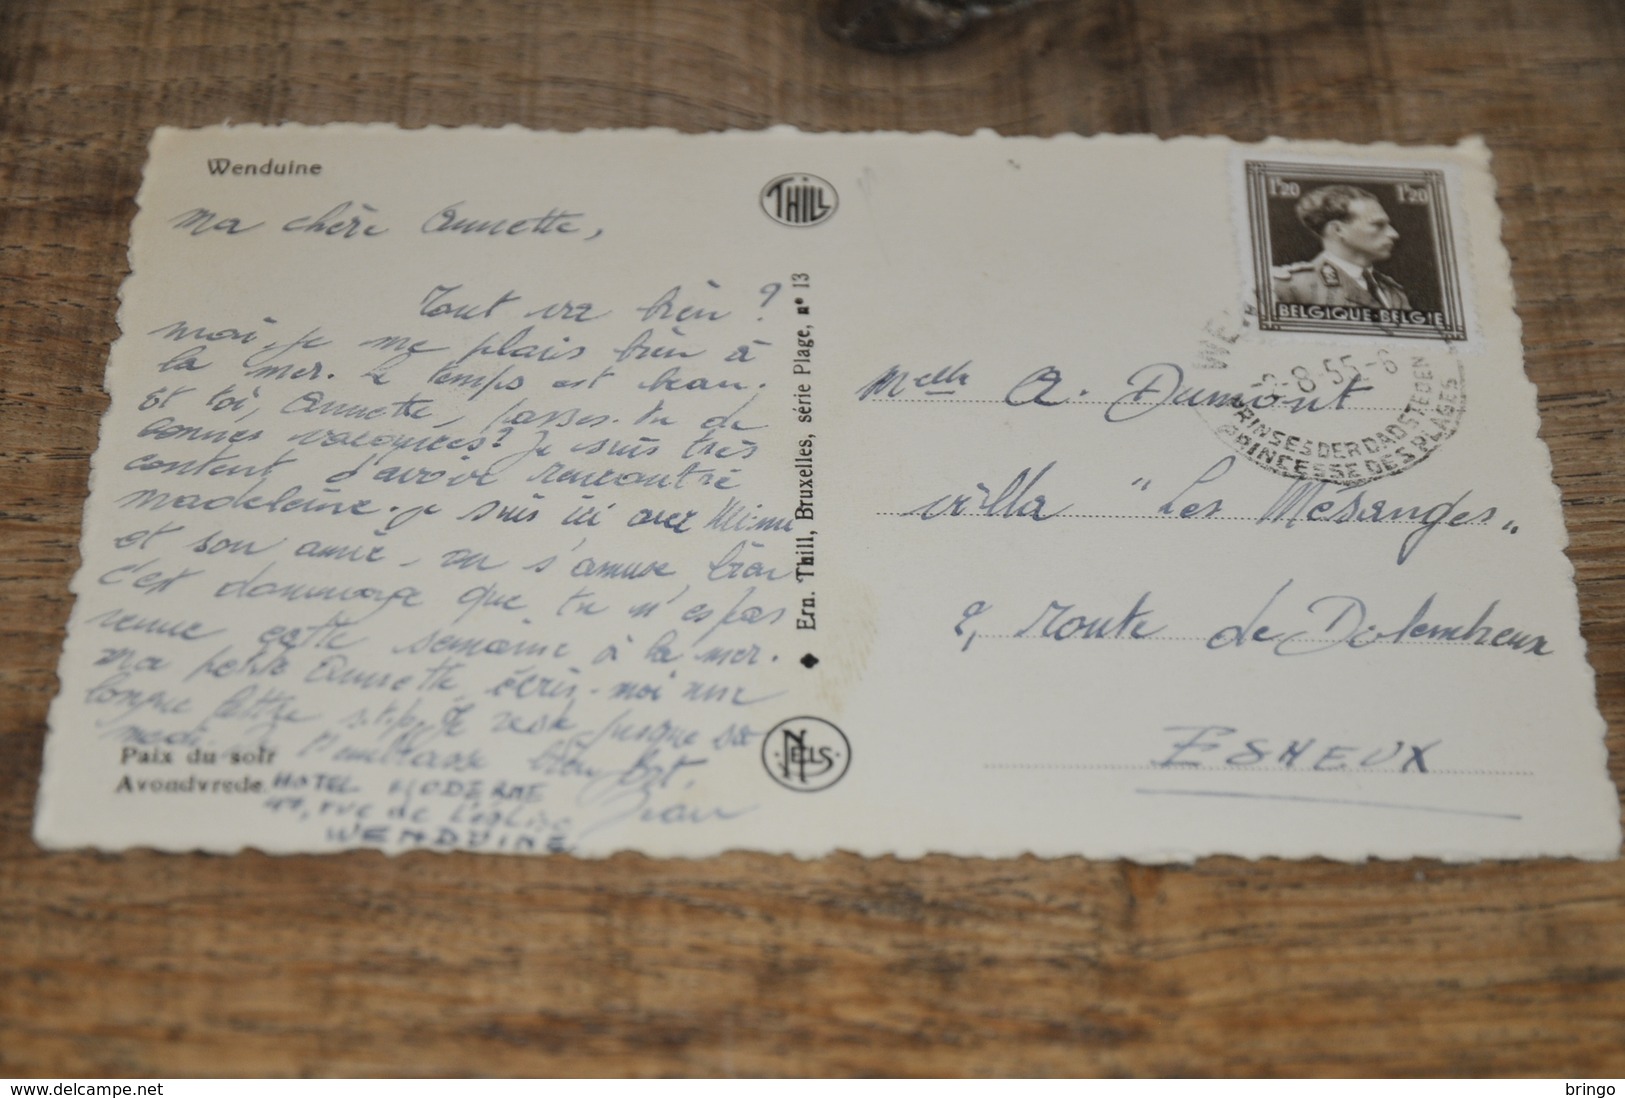 Wenduine
THILL
Ma chère Annette,
Tout va bien ?
moi, je me plais bien à
la mer. Le temps est beau.
Et toi, Annette, passes-tu de
bonnes vacances? Je suis très
content d'avoir rencontré
Madeleine. Je suis ici avec Mimi
et son amie. On s'amuse bien
c'est dommage que tu n'es pas
venue cette semaine à la mer.
Ma petite Annette, écris-moi une
longue lettre s.t.p. Je reste jusque sa
medi. Je t'embrasse bien fort.
Jean
Paix du soir
Avondvrede
HOTEL MODERNE
rue de L'église
WENDUINE
Ern. Thill, Bruxelles, série Plage, n° 13
NELS
1F20 1F20
BELGIQUE-BELGIE
-8-55-8
PRINSES DER BADSTEDEN
PRINCESSE DES PLAGES
Melle A. Dumont
villa "Les Mésanges"
2, Route de Dolembreux
ESNEUX
delcampe.net
bringo